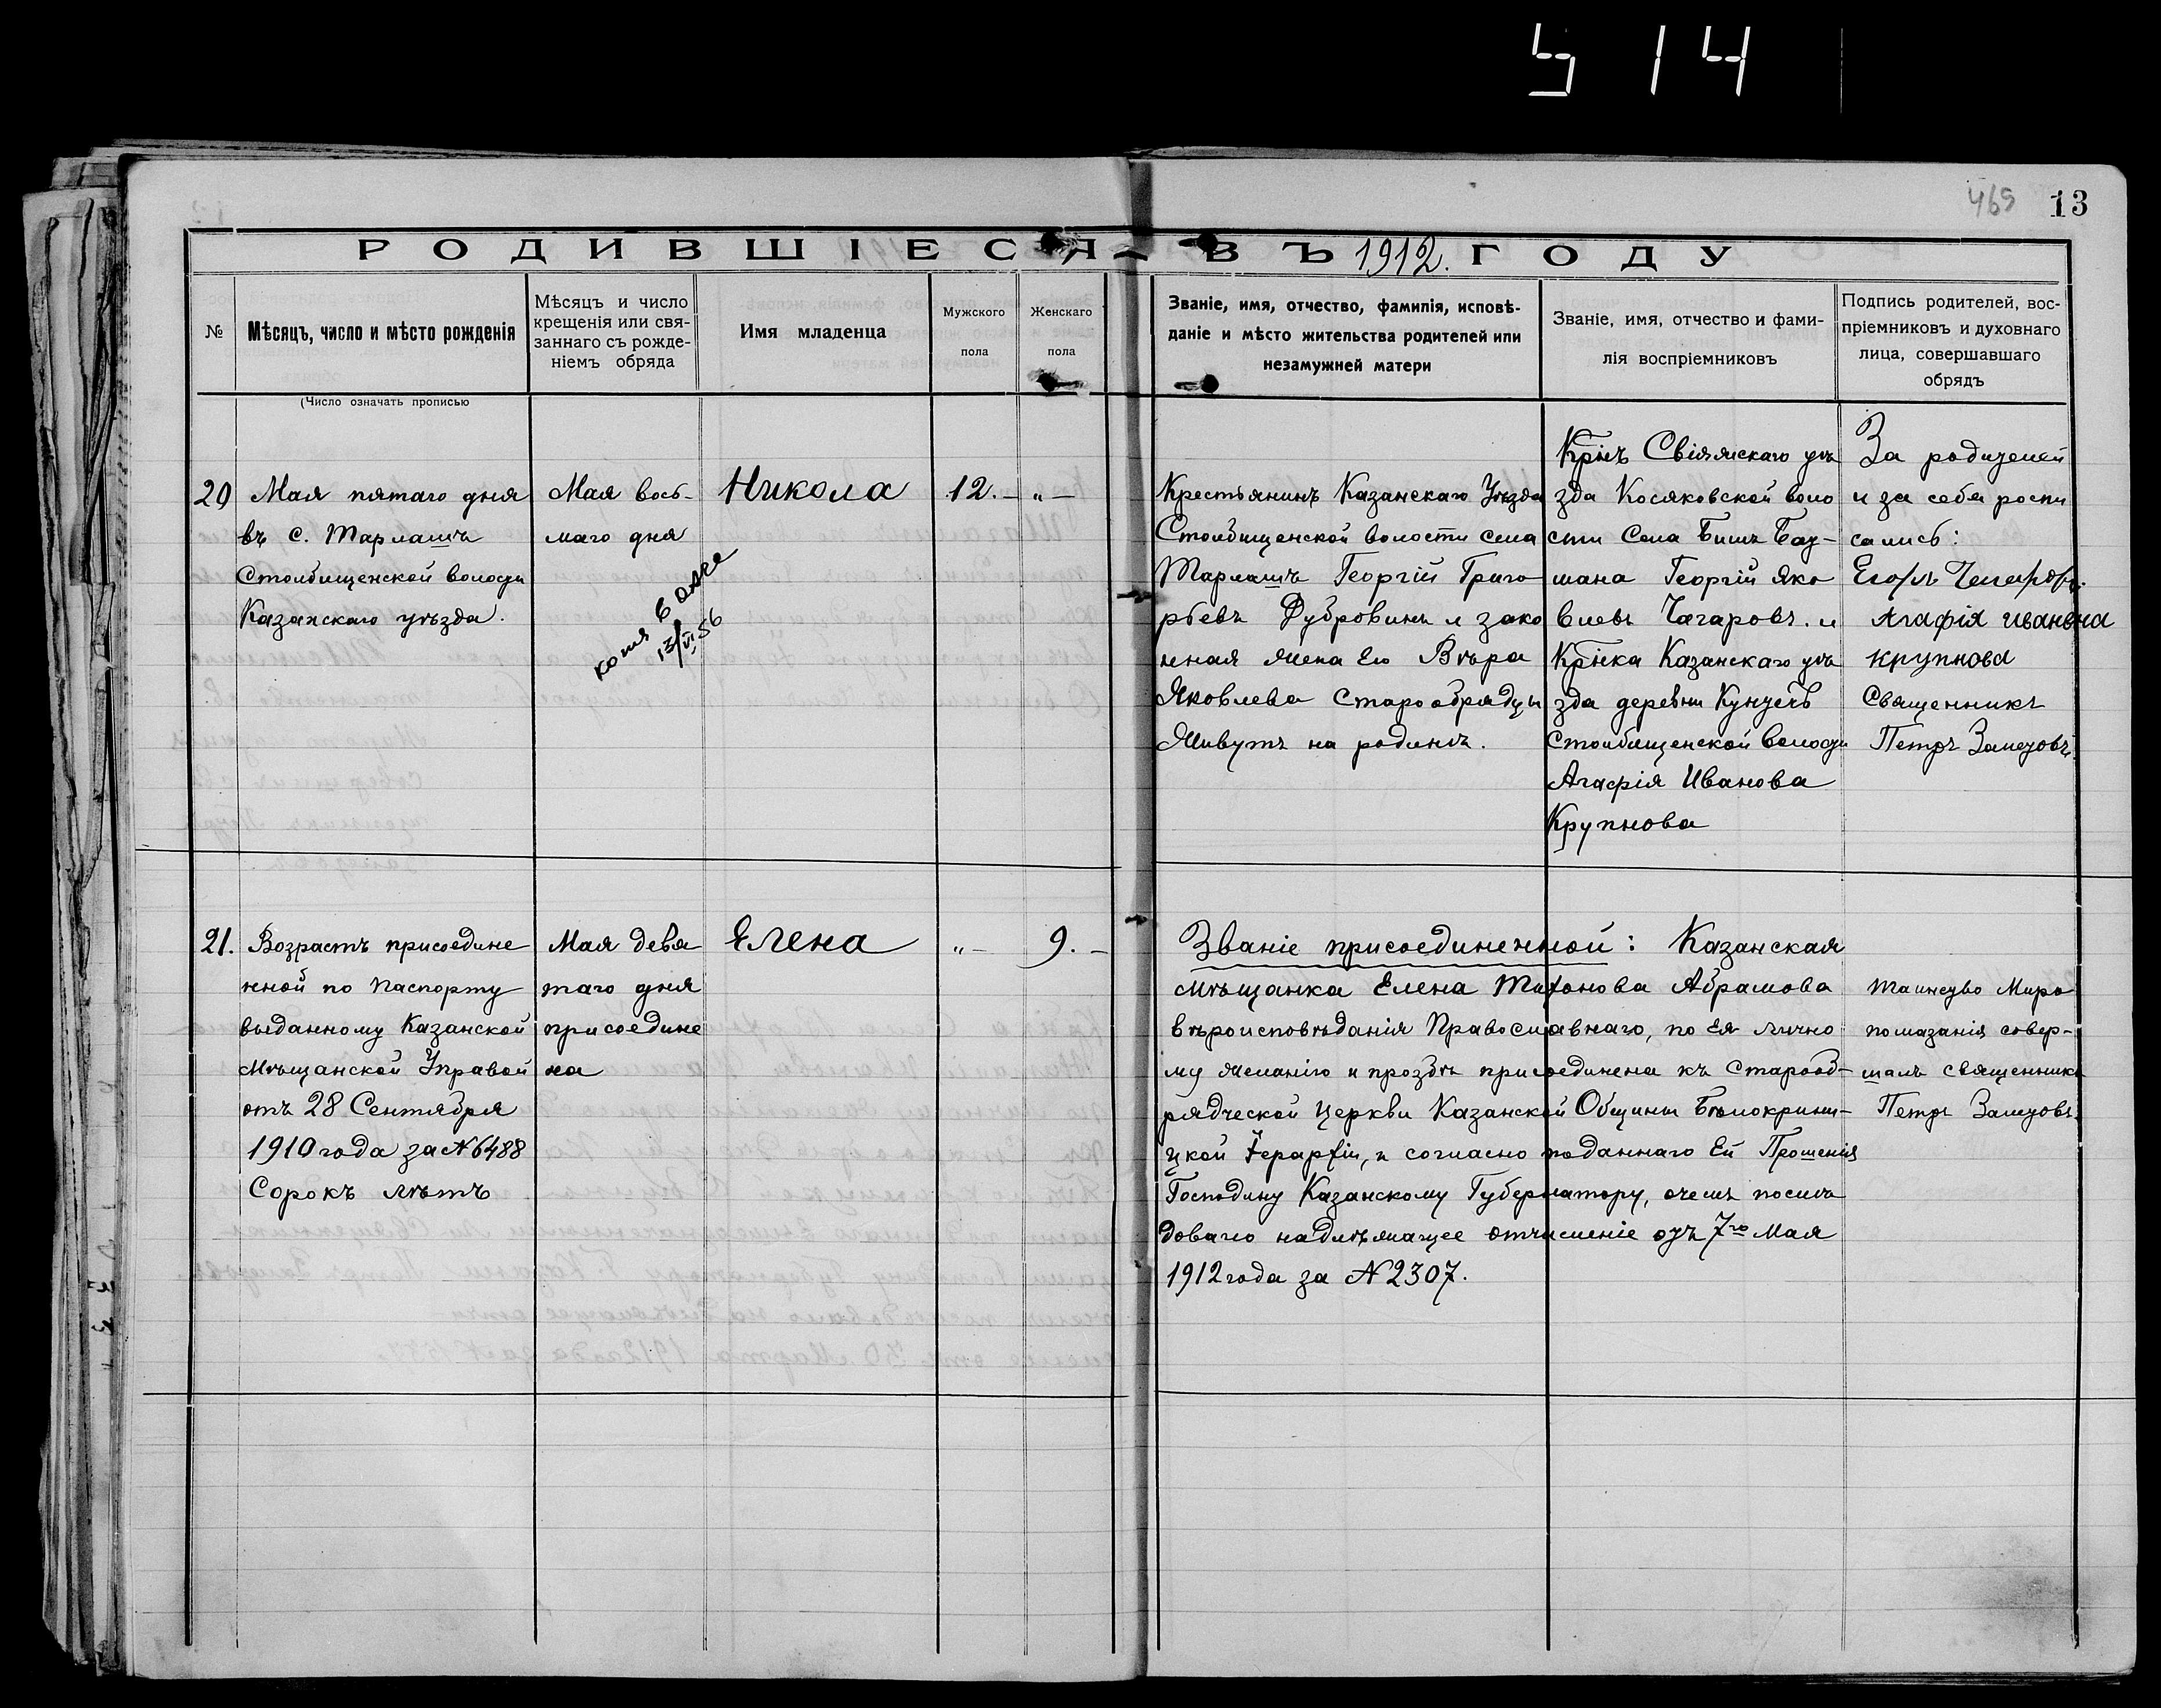 514
465 13
РОДИВШІЕСЯ ВЪ 1912. ГОДУ
№
Мѣсяцъ, число и мѣсто рожденія
Мѣсяцъ и число
крещенія или свя-
заннаго съ рожде-
ніемъ обряда
Имя младенца
Мужского
пола
Женскаго
пола
Званіе, имя, отчество, фамилія, исповѣ-
даніе и мѣсто жительства родителей или
незамужней матери
Званіе, имя, отчество и фами-
лія воспріемниковъ
Подпись родителей, вос-
пріемниковъ и духовнаго
лица, совершавшаго
обрядъ
(Число означать прописью
20
Мая пятаго дня
въ с. Тарлашъ
Столбищенской волости
Казанскаго уѣзда.
Мая вось-
маго дня
копия в
13/VI 56
Никола
12. –
„ –
Крестьянинъ Казанскаго Уѣзда
Столбищенской волости села
Тарлашъ Георгій Григо
рьевъ Дубровинъ и зако
нная жена его Вѣра
Яковлева старообрядцы
Живутъ на родинѣ.
Крнъ Свіяжскаго уѣ
зда Косяковской воло
сти Села Бишъ Бат-
мана Георгій Яко
влевъ Чагаровъ. и
Крнка Казанскаго уѣ
зда деревни
Столбищенской волости
Агафія Иванова
Крупнова
За родителей
и за себя роспи
сались:
Егоръ
Агафія Ивановна
Крупнова
Священникъ
Петръ Залетовъ.
21.
Возрастъ присоедине
нной по паспорту
выданному Казанской
Мѣщанской Управой
отъ 28 Сентября
1910 года за № 6488
Сорокъ лѣтъ
Мая девя
таго дня
присоедине
на
Елена
„ –
9. –
Званіе присоединенной: Казанская
мѣщанка Елена Тихонова Абрамова
вѣроисповѣданія Православнаго, по ея лично
му желанію и прозбѣ присоединена къ старооб-
рядческой Церкви Казанской Общины Бѣлокрини-
цкой Іерархіи, и согласно поданнаго Ей Прошенія
Господину Казанскому Губернатору, очемъ послѣ
довало надлѣжащее отчисленіе отъ 7го Мая
1912 года за № 2307.
Таинство Миро
помазанія совер-
шалъ священникъ
Петръ Залетовъ.